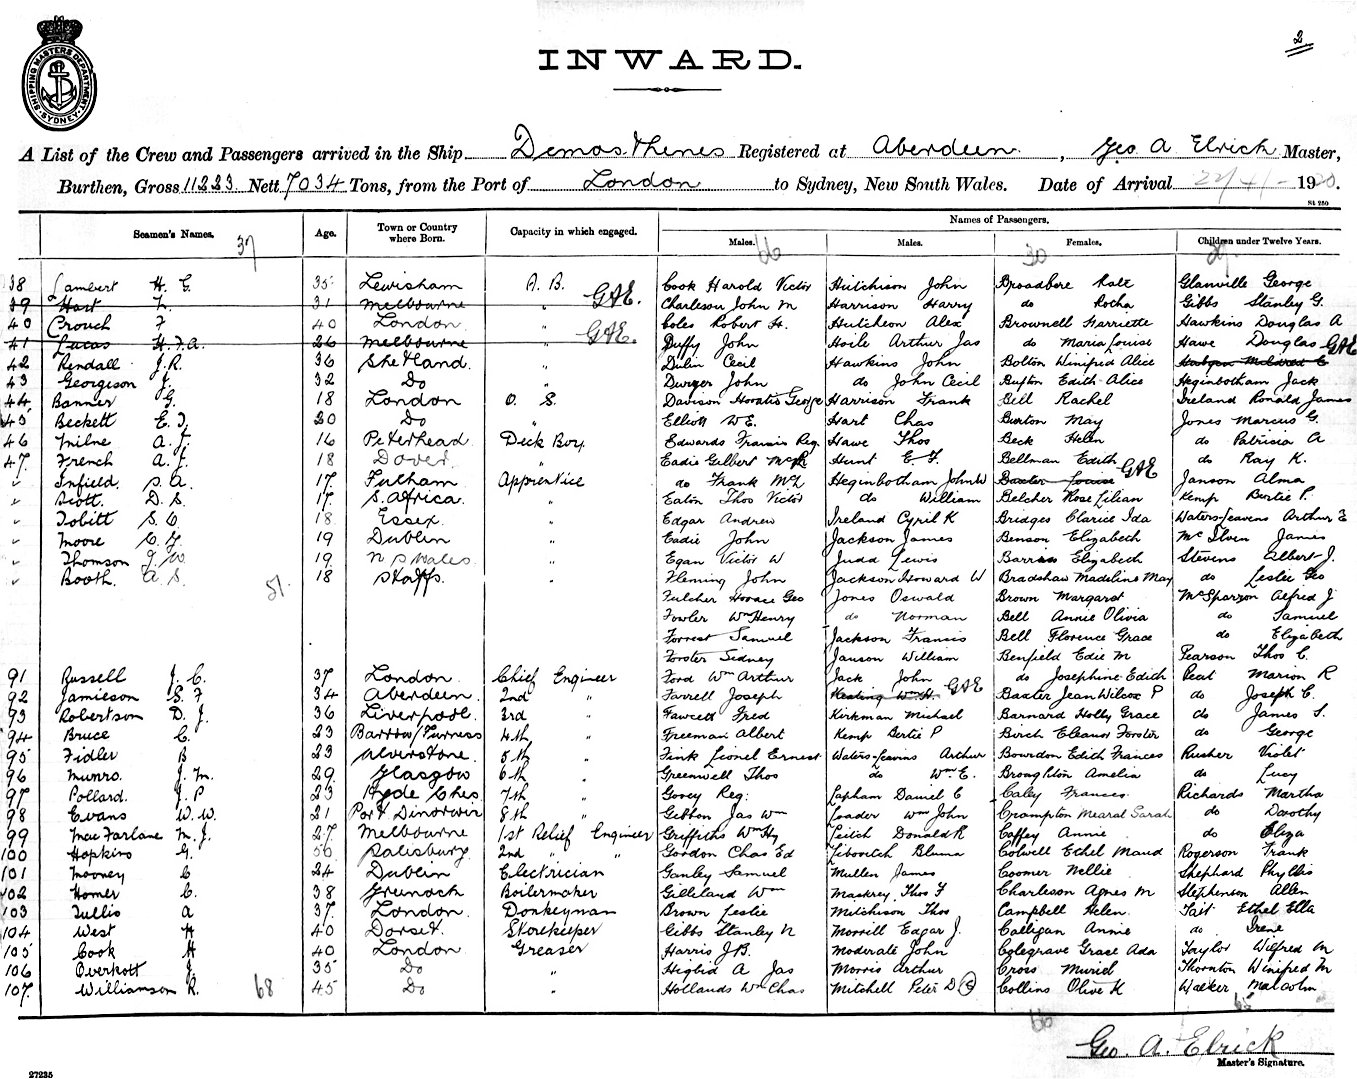 SHIPPING MASTERS DEPARTMENT SYDNEY
2
INWARD.
A List of the Crew and Passengers arrived in the Ship Demosthenes Registered at Aberdeen, Geo A Elrick Master,
Burthen, Gross 11223 Nett 7034 Tons, from the Port of London to Sydney, New South Wales. Date of Arrival 22/4/- 1920.
St 250
Seamen's Names. Age. Town or Country where Born. Capacity in which engaged. Names of Passengers.
37 Males. 66 Males. Females. 30 Children under Twelve Years.
38 Lambert H. G. 35 Lewisham A. B. Cook Harold Victor Hutchison John Broadbere Kate Glanville George
39 Hart F. 31 Melbourne " G.A.E. Charleson John M Harrison Harry do Rocha Gibbs Stanley G.
40 Crouch F 40 London " Coles Robert H. Hutcheon Alex Brownell Harriette Hawkins Douglas A
41 Lucas H.F.A. 26 Melbourne " G.A.E. Duffy John Hoile Arthur Jas do Maria Louise Hawe Douglas G.A.E
42 Rendall J.R. 36 Shetland " Dulin Cecil Hawkins John Bolton Winifred Alice Mildred
43 Georgison J. 32 Do " Dwyer John do John Cecil Bufton Edith Alice Heginbotham Jack
44 Banner G. 18 London O. S. Davison Horatio George Harrison Frank Bell Rachel Ireland Ronald James
45 Beckett E. J. 20 Do " Elliott W E. Hart Chas Burton May Jones Marcus G.
46 Milne A. J. 16 Peterhead Deck Boy Edwards Francis Reg. Hawe Thos Beck Helen do Patricia A
47. French A. J. 18 Dover " Eadie Gilbert McR Hunt E. J. Bellman Edith do Ray K.
Infield S.A. 17 Fulham Apprentice do Frank McL Heginbotham John W Baxter Louise G.A.E Janson Alma
Scott. D. S. 17 S. Africa. " Eaton Thos Victor do William Belcher Rose Lilian Kemp Bertie P.
Tobitt S. C. 18 Essex. " Edgar Andrew Ireland Cyril K Bridges Clarice Ida Waters-Jeavens Arthur E
Moore C. J. 19 Dublin " Eadie John Jackson James Benson Elizabeth McIlven James
Thomson J. W. 19 N S Wales. " Egan Victor W Judd Lewis Barriss Elizabeth Stevens Albert J.
Booth. A. S. 51. 18 Staffs. " Fleming John Jackson Howard W Bradshaw Madeline May do Leslie Geo
Fulcher Horace Geo Jones Oswald Brown Margaret McSparron Alfred J
Fowler Wm Henry do Norman Bell Annie Olivia do Samuel
Forrest Samuel Jackson Francis Bell Florence Grace do Elizabeth
Forster Sidney Janson William Benfield Edie M Pearson Thos C.
91 Russell J. C. 37 London. Chief Engineer Ford Wm Arthur Jack John do Josephine Edith Peat Marion R
92 Jamieson S. F 34 Aberdeen. 2nd " Farrell Joseph Keating Wm H. G.A.E Baxter Jean Wilcox P do Joseph C.
93 Robertson D. J. 36 Liverpool. 3rd " Fawcett Fred Kirkman Michael Barnard Holly Grace do James S.
94 Bruce C. 23 Barrow/Furness 4th " Freeman Albert Kemp Bertie P Birch Eleanor Forster do George
95 Fidler B 23 Ulverstone. 5th " Fink Lionel Ernest Waters-Jeavins Arthur Bowrdon Edith Frances Rusher Violet
96 Munro. J. M. 29. Glasgow 6th " Greenwell Thos do Wm E. Broughton Amelia do Lucy
97 Pollard. J. P 23 Hyde Ches. 7th " Govey Reg: Lapham Daniel C Caley Frances. Richards Martha
98 Evans W. W. 21 Port Dinorwic 8th " Gibbon Jas Wm Loader Wm John Crompton Mearal Sarah do Dorothy
99 MacFarlane M. J. 27 Melbourne 1st Relief Engineer Griffiths Wm Hy Leitch Donald R Caffey Annie do Eliza
100 Hopkins G. 50 Salisbury. 2nd " " Gordon Chas Ed Libovitch Bluma Colwell Ethel Maud Rogerson Frank
101 Mooney C 24 Dublin Electrician Ganley Samuel Mullen James Coomer Nellie Shephard Phyllis
102 Homer C. 38 Greenock Boilermaker Gilleland Wm Mackrey Thos F Charleson Agnes M Stephenson Allen
103 Tullis A 37. London. Donkeyman Brown Leslie Mitchison Thos Campbell Helen. Tait Ethel Ella
104 West H 40 Dorset. Storekeeper Gibbs Stanley N Morrill Edgar J. Calligan Annie do Irene
105 Cook H 40 London. Greaser Harris J.B. Moderate John Colegrave Grace Ada Taylor Wilfred M
106 Overkott J. 35 Do " Higbid A Jas Morris Arthur Cross Muriel Thornton Winifred M
107. Williamson R. 68 45 Do " Hollands Wm Chas Mitchell Peter D Collins Olive K Walker Malcolm
66 65
Geo. A. Elrick
Master's Signature.
27235